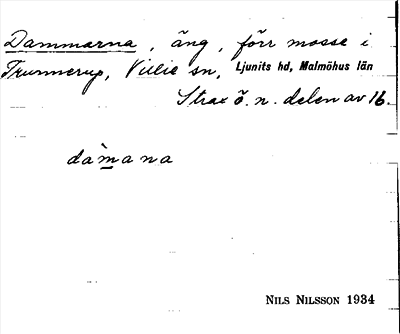 Dammarna, äng, förr mosse i
Trunnerup, Villie sn, Ljunits hd, Malmöhus län
Strax ö. n. delen av 16.
dàmana
NILS NILSSON 1934